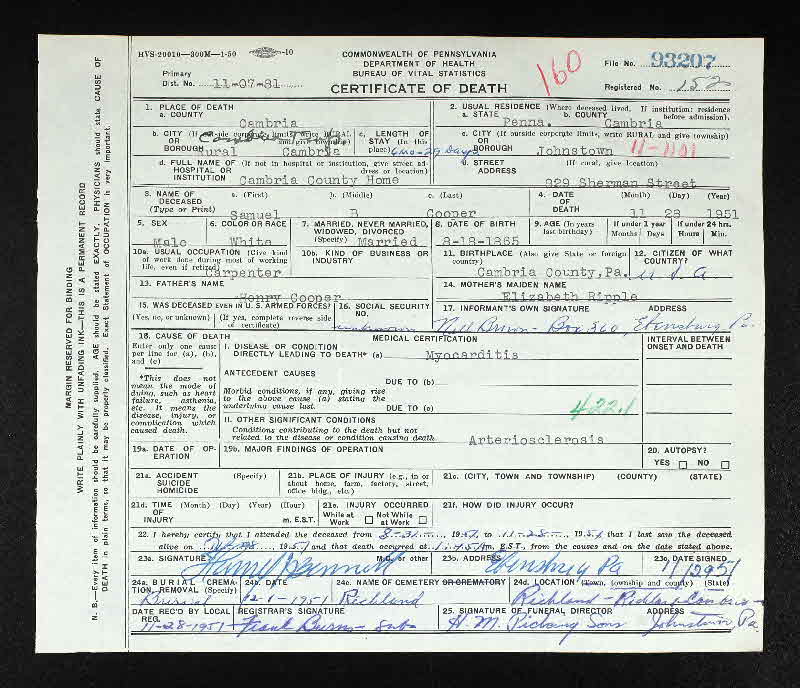 HVS-20010—300M—1-50 -10
COMMONWEALTH OF PENNSYLVANIA
DEPARTMENT OF HEALTH
BUREAU OF VITAL STATISTICS
CERTIFICATE OF DEATH
160
File No. 93207
Registered No. 152
Primary
Dist. No. 11-07-81
MARGIN RESERVED FOR BINDING
WRITE PLAINLY WITH UNFADING INK—THIS IS A PERMANENT RECORD
N. B.—Every item of information should be carefully supplied. AGE should be stated EXACTLY. PHYSICIANS should state CAUSE OF
DEATH in plain terms, so that it may be properly classified. Exact Statement of OCCUPATION is very important.
1. PLACE OF DEATH
a. COUNTY
Cambria
2. USUAL RESIDENCE (Where deceased lived. If institution: residence before admission).
a. STATE b. COUNTY
Penna. Cambria
b. CITY (If outside corporate limits, write RURAL and give township)
OR
BOROUGH Rural Cambria
c. LENGTH OF STAY (in this place)
29 Days
c. CITY (If outside corporate limits, write RURAL and give township)
OR
BOROUGH Johnstown 11-1101
d. FULL NAME OF (If not in hospital or institution, give street address or location)
HOSPITAL OR
INSTITUTION Cambria County Home
d. STREET (If rural, give location)
ADDRESS
329 Sherman Street
3. NAME OF DECEASED
(Type or Print)
a. (First) b. (Middle) c. (Last)
Samuel B Cooper
4. DATE OF DEATH (Month) (Day) (Year)
11 28 1951
5. SEX
Male
6. COLOR OR RACE
White
7. MARRIED, NEVER MARRIED, WIDOWED, DIVORCED (Specify) Married
8. DATE OF BIRTH
8-18-1865
9. AGE (In years last birthday)
If under 1 year
Months Days
If under 24 hrs.
Hours Min.
10a. USUAL OCCUPATION (Give kind of work done during most of working life, even if retired)
Carpenter
10b. KIND OF BUSINESS OR INDUSTRY
11. BIRTHPLACE (Also give State or foreign country)
Cambria County, Pa.
12. CITIZEN OF WHAT COUNTRY?
U S A
13. FATHER'S NAME
Henry Cooper
14. MOTHER'S MAIDEN NAME
Elizabeth Ripple
15. WAS DECEASED EVER IN U. S. ARMED FORCES?
(Yes, no, or unknown) (If yes, complete reverse side of certificate)
16. SOCIAL SECURITY NO.
unknown
17. INFORMANT'S OWN SIGNATURE ADDRESS
Box 360, Ebensburg, Pa.
18. CAUSE OF DEATH
Enter only one cause per line for (a), (b), and (c)
*This does not mean the mode of dying, such as heart failure, asthenia, etc. It means the disease, injury, or complication which caused death.
MEDICAL CERTIFICATION
INTERVAL BETWEEN ONSET AND DEATH
I. DISEASE OR CONDITION
DIRECTLY LEADING TO DEATH* (a) Myocarditis
ANTECEDENT CAUSES
DUE TO (b)
Morbid conditions, if any, giving rise to the above cause (a) stating the underlying cause last.
DUE TO (c)
422.1
II. OTHER SIGNIFICANT CONDITIONS
Conditions contributing to the death but not related to the disease or condition causing death. Arteriosclerosis
19a. DATE OF OPERATION
19b. MAJOR FINDINGS OF OPERATION
20. AUTOPSY?
YES NO
21a. ACCIDENT SUICIDE HOMICIDE (Specify)
21b. PLACE OF INJURY (e.g., in or about home, farm, factory, street, office bldg., etc.)
21c. (CITY, TOWN AND TOWNSHIP) (COUNTY) (STATE)
21d. TIME (Month) (Day) (Year) (Hour)
OF
INJURY m. E.S.T.
21e. INJURY OCCURRED
While at Work Not While at Work
21f. HOW DID INJURY OCCUR?
22. I hereby certify that I attended the deceased from 8-31, 1951, to 11-28, 1951 that I last saw the deceased
alive on , 1951 and that death occurred at m. E.S.T., from the causes and on the date stated above.
23a. SIGNATURE M.D. or other
23b. ADDRESS
Ebensburg Pa
23c. DATE SIGNED
24a. BURIAL, CREMATION, REMOVAL (Specify)
Burial
24b. DATE
12-1-1951
24c. NAME OF CEMETERY OR CREMATORY
Richland
24d. LOCATION (Town, township and county) (State)
Richland
DATE REC'D BY LOCAL REG.
11-28-1951
REGISTRAR'S SIGNATURE
Frank Burns
25. SIGNATURE OF FUNERAL DIRECTOR ADDRESS
H. M. Pickering Sons Johnstown, Pa.